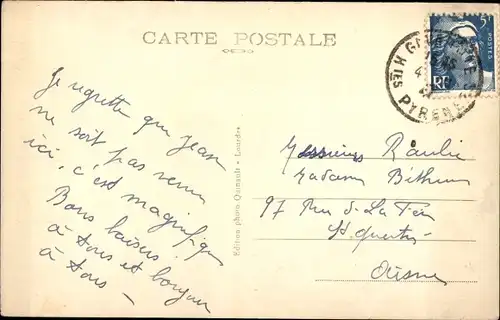 CARTE POSTALE
5F
POSTES
RF
GAVARNIE
Htes PYRENEES
Je regrette que Jean
ne soit pas venu
ici, c'est magnifique
Bons baisers
à tous et bonjour
à tous -
Edition photo Quinault - Lourdes
Messieurs
Madame Béthune
97 Rue de La Fère
St Quentin
Aisne